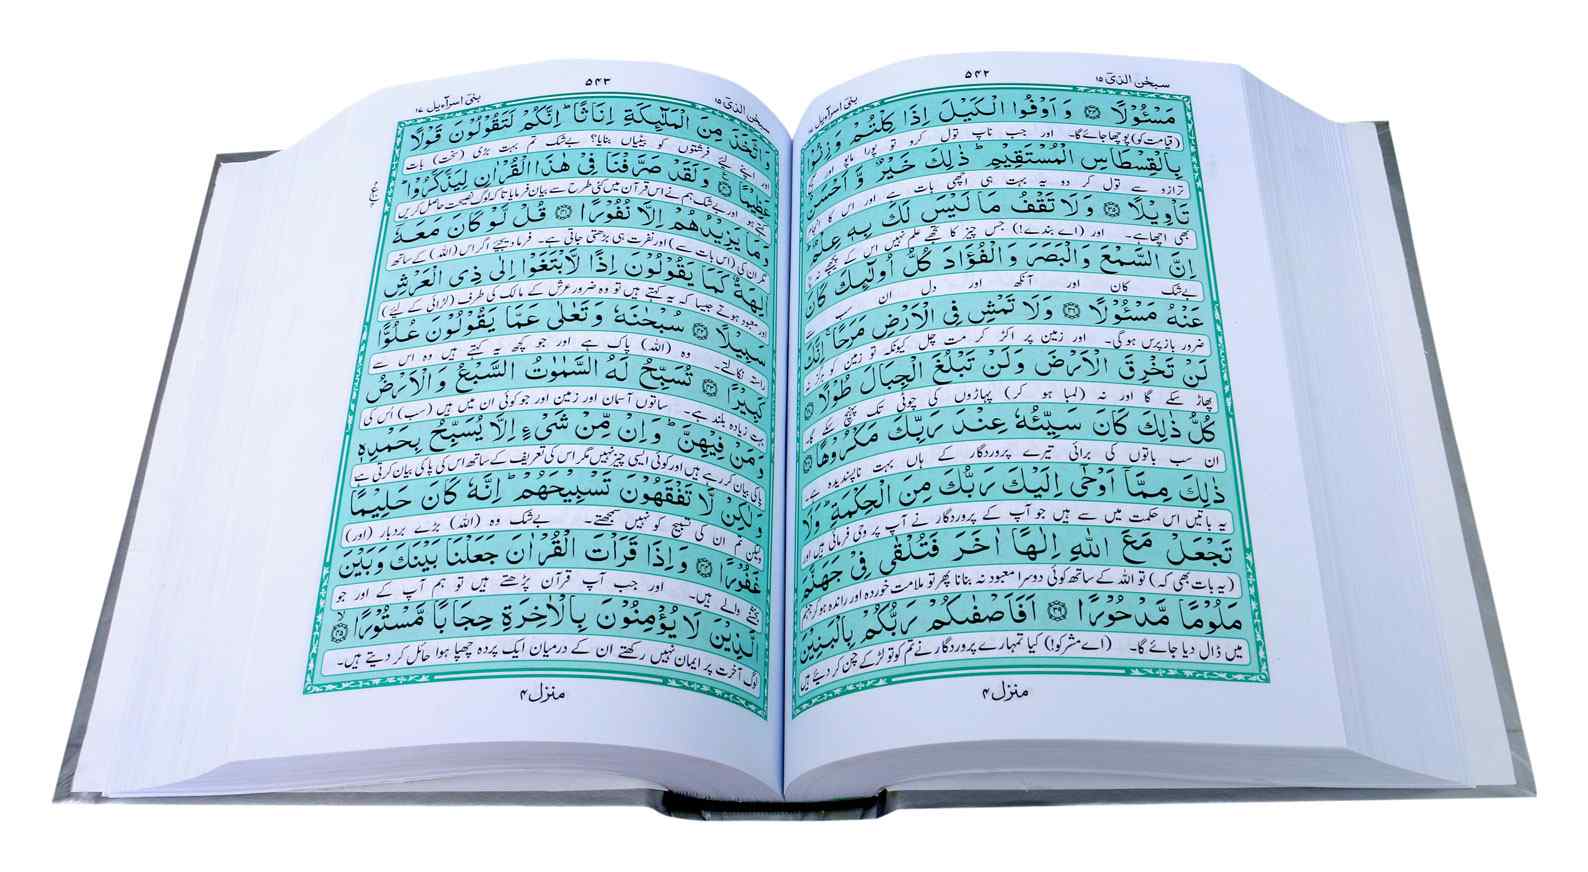 سبحٰن الذیٓ ۱۵ ۵۴۲ بنیٓ اسرآءیل ۱۷
مَسْـُٔوْلًا ۝۳۴ وَ اَوْفُوا الْكَيْلَ اِذَا كِلْتُمْ وَ زِنُوْا
(قیامت کو) پوچھا جائے گا۔ اور جب ناپ تول کرو تو پورا ماپو اور
بِالْقِسْطَاسِ الْمُسْتَقِيْمِ ؕ ذٰلِكَ خَيْرٌ وَّ اَحْسَنُ
ترازو سے تول کر دو یہ بہت ہی اچھی بات ہے اور اس کا انجام
تَاْوِيْلًا ۝۳۵ وَ لَا تَقْفُ مَا لَيْسَ لَكَ بِهٖ عِلْمٌ ؕ
بھی اچھا ہے۔ اور (اے بندے!) جس چیز کا تجھے علم نہیں اس کے پیچھے نہ
اِنَّ السَّمْعَ وَالْبَصَرَ وَالْفُؤَادَ كُلُّ اُولٰٓئِكَ كَانَ
بےشک کان اور آنکھ اور دل ان سب
عَنْهُ مَسْـُٔوْلًا ۝۳۶ وَ لَا تَمْشِ فِی الْاَرْضِ مَرَحًا ۚ اِنَّكَ
ضرور بازپرس ہوگی۔ اور زمین پر اکڑ کر مت چل کیونکہ تو زمین کو ہرگز نہ
لَنْ تَخْرِقَ الْاَرْضَ وَ لَنْ تَبْلُغَ الْجِبَالَ طُوْلًا ۝۳۷
پھاڑ سکے گا اور نہ (لمبا ہو کر) پہاڑوں کی چوٹی تک پہنچ سکے گا۔
كُلُّ ذٰلِكَ كَانَ سَيِّئُهٗ عِنْدَ رَبِّكَ مَكْرُوْهًا ۝۳۸
ان سب باتوں کی برائی تیرے پروردگار کے ہاں بہت ناپسندیدہ ہے۔
ذٰلِكَ مِمَّاۤ اَوْحٰۤی اِلَيْكَ رَبُّكَ مِنَ الْحِكْمَةِ ؕ وَلَا
یہ باتیں اس حکمت میں سے ہیں جو آپ کے پروردگار نے آپ پر وحی فرمائی ہیں اور
تَجْعَلْ مَعَ اللّٰهِ اِلٰهًا اٰخَرَ فَتُلْقٰی فِیْ جَهَنَّمَ
(یہ بات بھی کہ) تو اللہ کے ساتھ کوئی دوسرا معبود نہ بنانا پھر تو ملامت خوردہ اور راندہ ہو کر جہنم
مَلُوْمًا مَّدْحُوْرًا ۝۳۹ اَفَاَصْفٰىكُمْ رَبُّكُمْ بِالْبَنِيْنَ
میں ڈال دیا جائے گا۔ (اے مشرکو!) کیا تمہارے پروردگار نے تم کو تو لڑکے چن کر دیئے ہیں
منزل ۴
سبحٰن الذیٓ ۱۵ ۵۴۳ بنیٓ اسرآءیل ۱۷
وَاتَّخَذَ مِنَ الْمَلٰٓئِكَةِ اِنَاثًا ؕ اِنَّكُمْ لَتَقُوْلُوْنَ قَوْلًا
اور اپنے لیے فرشتوں کو بیٹیاں بنایا؟ بےشک تم بہت بڑی (سخت) بات
عَظِيْمًا ۝۴۰ وَ لَقَدْ صَرَّفْنَا فِیْ هٰذَا الْقُرْاٰنِ لِيَذَّكَّرُوْا ؕ
کہتے ہو اور بےشک ہم نے اس قرآن میں کئی طرح سے بیان فرمایا تاکہ لوگ نصیحت حاصل کریں
وَمَا يَزِيْدُهُمْ اِلَّا نُفُوْرًا ۝۴۱ قُلْ لَّوْ كَانَ مَعَهٗۤ
مگر ان کی (اس بات سے) اور نفرت ہی بڑھتی جاتی ہے۔ فرما دیجئے اگر اس (اللہ) کے ساتھ
اٰلِهَةٌ كَمَا يَقُوْلُوْنَ اِذًا لَّابْتَغَوْا اِلٰی ذِی الْعَرْشِ
اور معبود ہوتے جیسا کہ یہ کہتے ہیں تو وہ ضرور عرش کے مالک کی طرف (لڑائی کے لیے)
سَبِيْلًا ۝۴۲ سُبْحٰنَهٗ وَ تَعٰلٰی عَمَّا يَقُوْلُوْنَ عُلُوًّا
راستہ نکالتے۔ وہ (اللہ) پاک ہے اور جو کچھ یہ کہتے ہیں وہ اس سے
كَبِيْرًا ۝۴۳ تُسَبِّحُ لَهُ السَّمٰوٰتُ السَّبْعُ وَالْاَرْضُ
بہت زیادہ بلند ہے۔ ساتوں آسمان اور زمین اور جو کوئی ان میں ہیں (سب) اُس کی
وَمَنْ فِيْهِنَّ ؕ وَ اِنْ مِّنْ شَیْءٍ اِلَّا يُسَبِّحُ بِحَمْدِهٖ
پاکی بیان کر رہے ہیں اور کوئی ایسی چیز نہیں مگر اس کی تعریف کے ساتھ اس کی پاکی بیان کرتی ہے
وَلٰكِنْ لَّا تَفْقَهُوْنَ تَسْبِيْحَهُمْ ؕ اِنَّهٗ كَانَ حَلِيْمًا
لیکن تم ان کی تسبیح کو نہیں سمجھتے۔ بےشک وہ (اللہ) بڑے بردبار (اور)
غَفُوْرًا ۝۴۴ وَ اِذَا قَرَاْتَ الْقُرْاٰنَ جَعَلْنَا بَيْنَكَ وَ بَيْنَ
بخشنے والے ہیں۔ اور جب آپ قرآن پڑھتے ہیں تو ہم آپ کے اور جو
الَّذِيْنَ لَا يُؤْمِنُوْنَ بِالْاٰخِرَةِ حِجَابًا مَّسْتُوْرًا ۝۴۵
لوگ آخرت پر ایمان نہیں رکھتے ان کے درمیان ایک پردہ چھپا ہوا حائل کر دیتے ہیں۔
منزل ۴